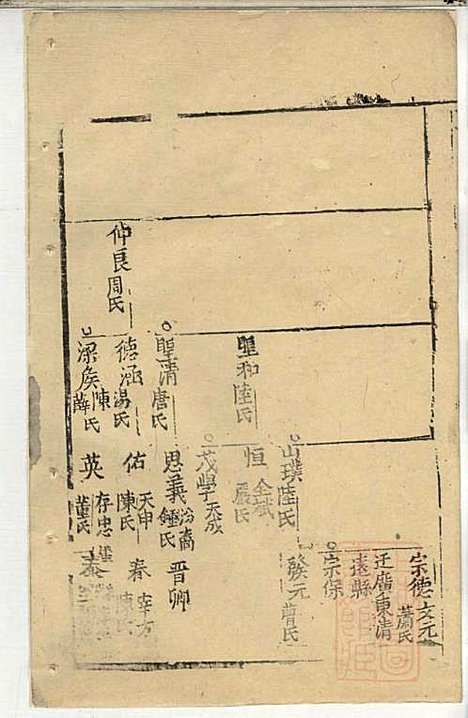 宗德 文元 蕭氏
迁廣東清
遠縣
宗保
山璞 陸氏
發元 曾氏
聖和 陸氏
恒 嚴氏
茂學 天成
聖清 唐氏
思義 鍾氏
晋卿
仲良 周氏
德涵 易氏
佑 天申 陳氏
春 宰方 陳氏
深矣 陳氏 薛氏
英 存忠 董氏
泰